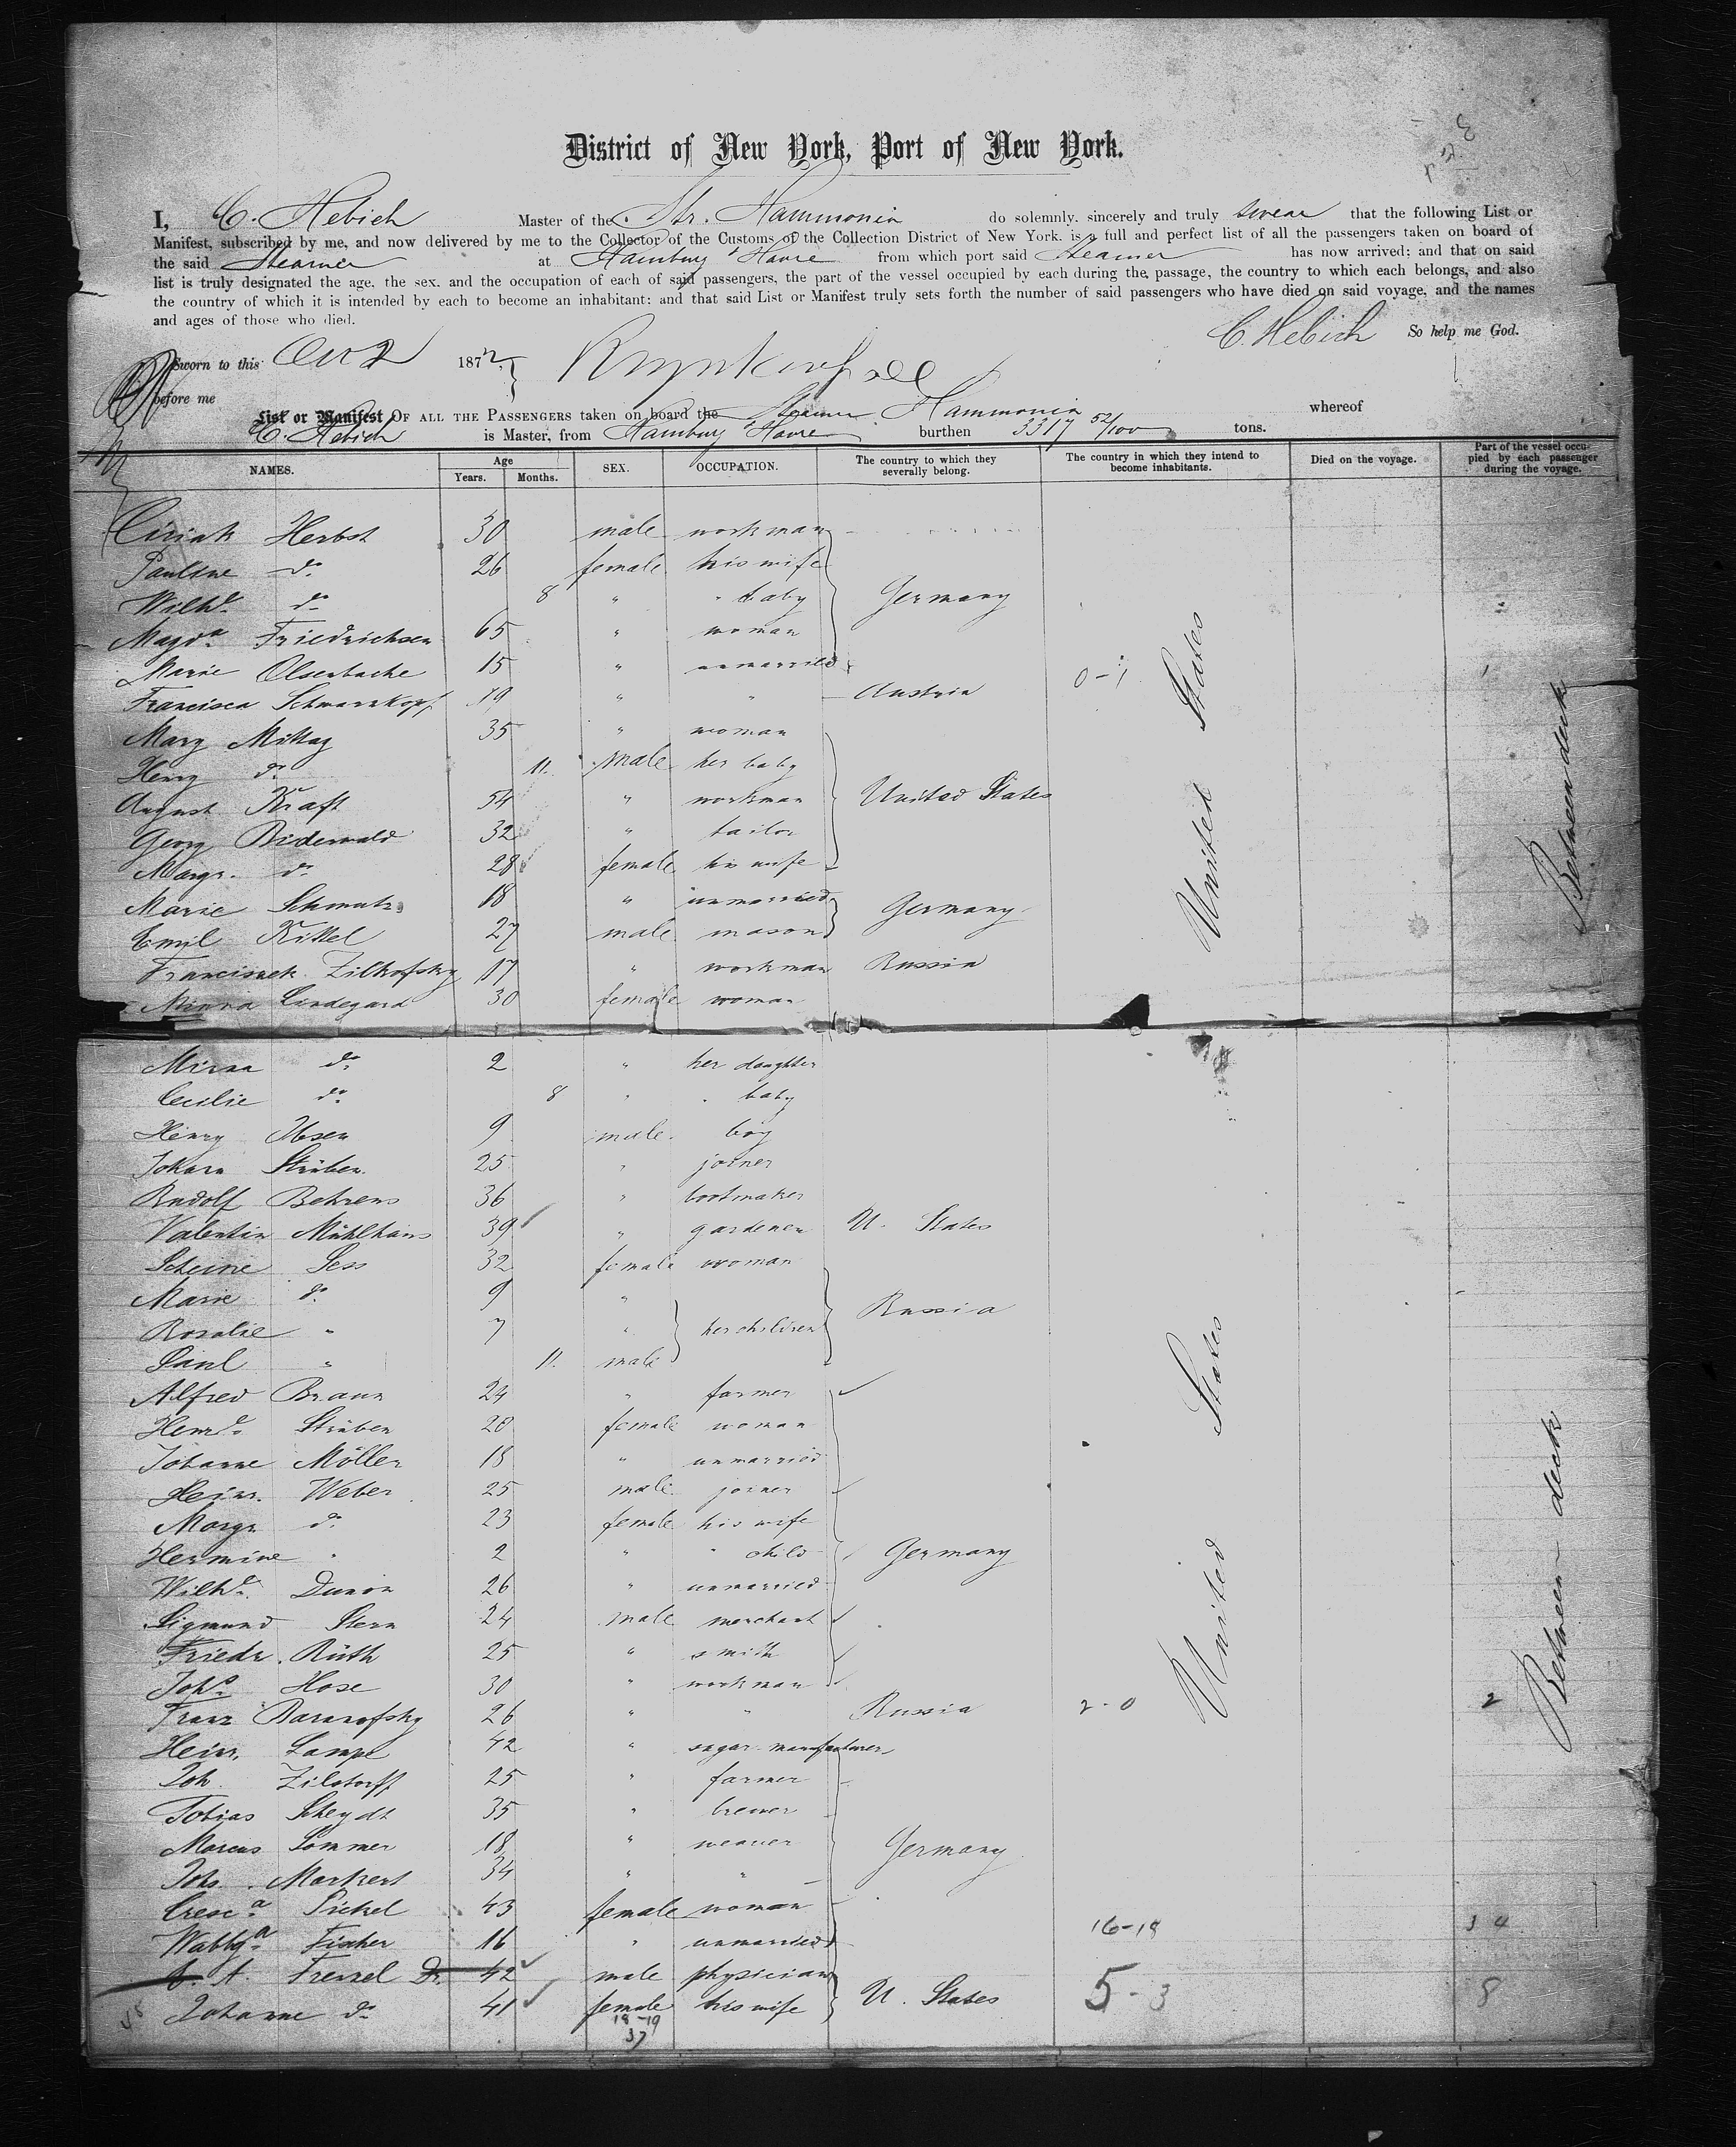 District of New York, Port of New York.
I, C. Hebich Master of the Str. Hammonia do solemnly, sincerely and truly swear that the following List or
Manifest, subscribed by me, and now delivered by me to the Collector of the Customs of the Collection District of New York, is a full and perfect list of all the passengers taken on board of
the said Steamer at Hamburg & Havre from which port said Steamer has now arrived; and that on said
list is truly designated the age, the sex, and the occupation of each of said passengers, the part of the vessel occupied by each during the passage, the country to which each belongs, and also
the country of which it is intended by each to become an inhabitant: and that said List or Manifest truly sets forth the number of said passengers who have died on said voyage, and the names
and ages of those who died.
C. Hebich So help me God.
Sworn to this 1872
before me
List or Manifest OF ALL THE PASSENGERS taken on board the Steamer Hammonia whereof
C. Hebich is Master, from Hamburg & Havre burthen 3317 52/100 tons.
NAMES. Age Years. Months. SEX. OCCUPATION. The country to which they severally belong. The country in which they intend to become inhabitants. Died on the voyage. Part of the vessel occupied by each passenger during the voyage.
Herbst 30 male workman
Pauline do 26 female his wife
Wilhe do 8 " " baby Germany
Magda Friedrichsen 65 " woman
Marie 15 " unmarried
Francisca Schwarzkopf 19 " " Austria 0-1 1
Mary Mittag 35 " woman
Henry do 11. male her baby
August Kraft 54 " workman United States
Georg Biderwald 32 " tailor
Margr. do 28 female his wife
Marie Schmutz 18 " unmarried Germany
Emil Kittel 27 male mason
Zilkofsky 17 " workman Russia
Minna Lindegard 30 female woman
United States
Between deck
Minna do 2 " her daughter
Cecilie do 8 " " baby
Henry Ibsen 9 male boy
Johann Strüben 25 " joiner
Rudolf Behrens 36 " bootmaker
Valentin Mühlhaus 39 " gardener U. States
Scheine Sess 32 female woman
Marie do 9 "
Rosalie " 7 " her children Russia
Paul " 11. male
Alfred Braun 24 " farmer
Henre Strüben 20 female woman
Johanne Möller 18 " unmarried
Heinr. Weber 25 male joiner
Margr do 23 female his wife
Hermine " 2 " " child Germany
Wilhe 26 " unmarried
Sigmund Stern 24 male merchant
Friedr. Rüth 25 " smith
Johs Hose 30 " workman
Franz Baranofsky 26 " " Russia 2-0 2
Heinr. Lampe 42 " sugar manufacturer
Joh. Zilstorff 25 " farmer
Tobias Scheydt 35 " brewer
Marcus Sommer 18 " weaver Germany
Johs. Markert 34 " "
Cresca Pickel 43 female woman
Walbga Fischer 16 " unmarried 16-18 34
A. Frenzel Dr. 42 male physician
Johanne do 41 female his wife U. States 5-3 8
18-19
37
United States
Between deck